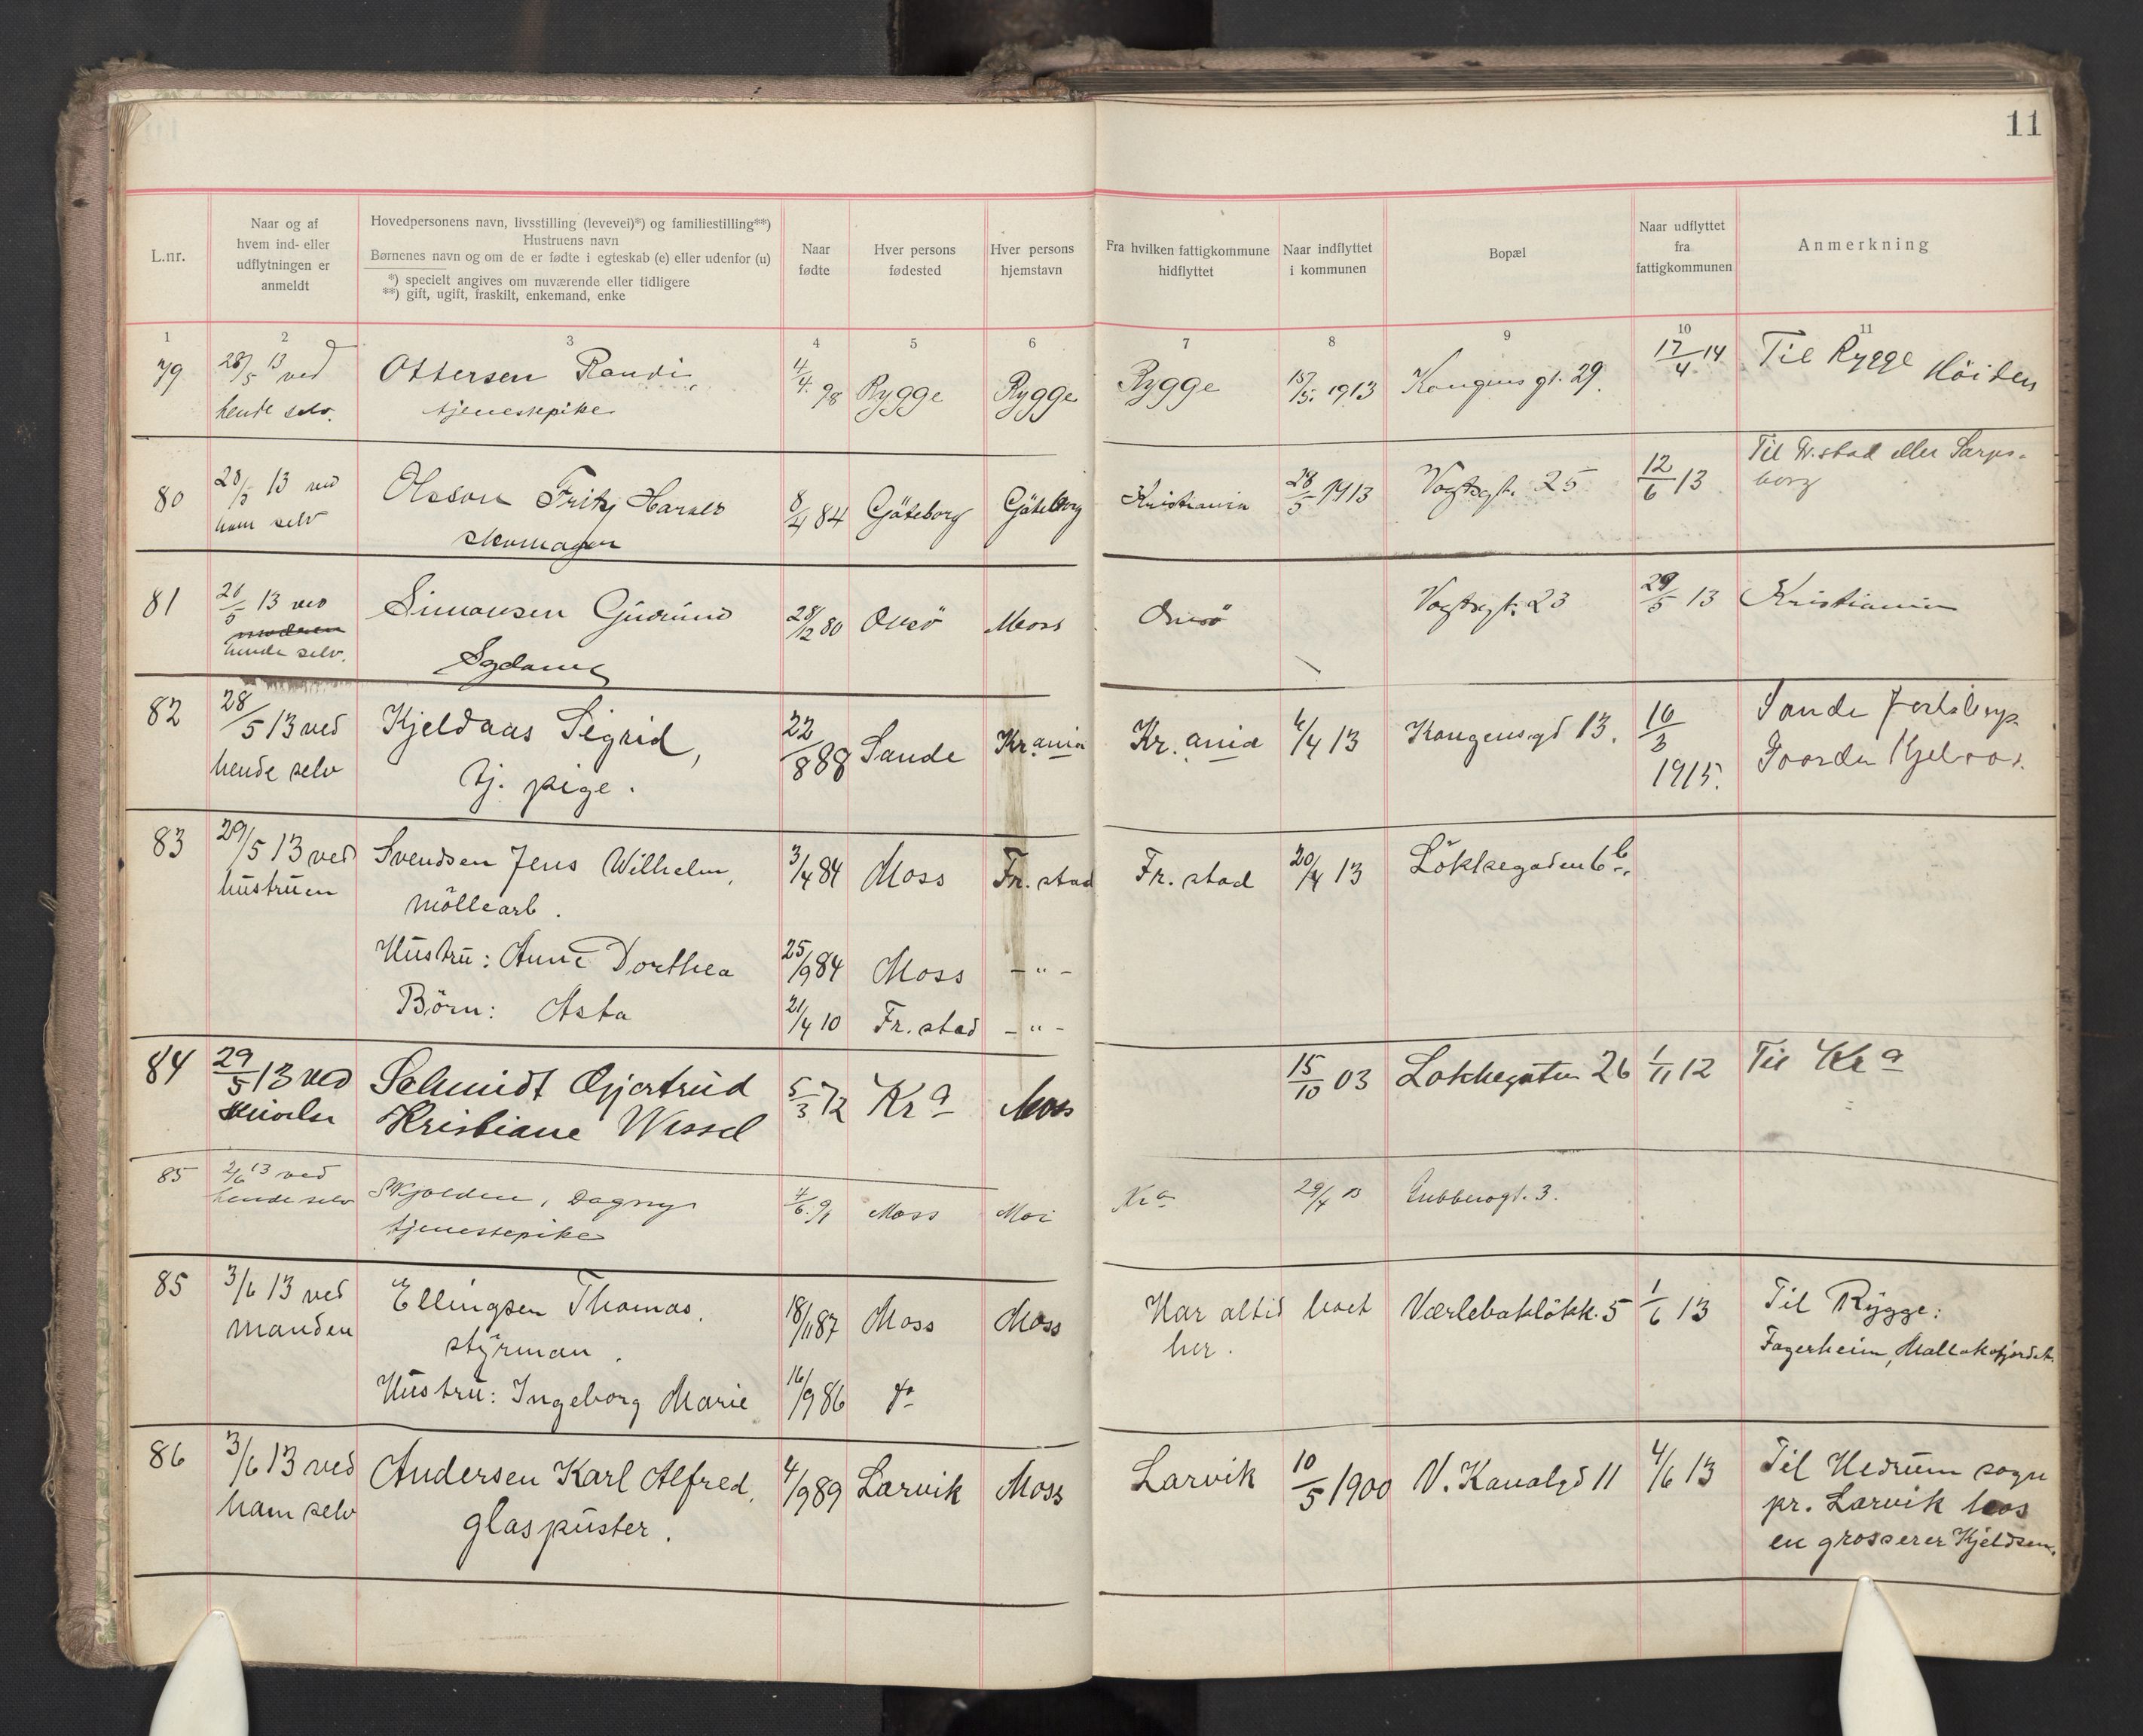 11
L.nr.
Naar og af
hvem ind- eller
udflytningen er
anmeldt
Hovedpersonens navn, livsstilling (levevei)*) og familiestilling**)
Hustruens navn
Børnenes navn og om de er fødte i egteskab (e) eller udenfor (u)
*) specielt angives om nuværende eller tidligere
**) gift, ugift, fraskilt, enkemand, enke
Naar
fødte
Hver persons
fødested
Hver persons
hjemstavn
Fra hvilken fattigkommune
hidflyttet
Naar indflyttet
i kommunen
Bopæl
Naar udflyttet
fra
fattigkommunen
Anmerkning
1 2 3 4 5 6 7 8 9 10 11
79 28/5 13 ved Ottersen Randi 4/4 98 Rygge Rygge Rygge 15/5 1913 Kongens gt. 29. 17/4 14 Til Rygge Höiden
hende selv. tjenestepike
80 28/5 13 ved Olsson Fritz Harald 8/4 84 Göteborg Göteborg Kristiania 28/5 1913 Vogtsgt. 25 12/6 13 Til Fr.stad eller Sarps-
ham selv skomager borg
81 28/5 13 ved Simonsen Gudrund 28/12 80 Onsö Moss Onsö Vogtsgt. 23 29/5 13 Kristiania
hende selv.
82 28/5 13 ved Kjeldaas Sigrid, 22/8 88 Sande Kr.ania Kr.ania 6/4 13 Kongensgd 13. 16/3 Sande
hende selv tj. pige. 1915. Gaarden
83 29/5 13 ved Svendsen Jens Wilhelm, 3/4 84 Moss Fr. stad Fr. stad 20/4 13 Lökkegaden 6 b
hustruen möllearb.
Hustru: Anne Dorthea 25/9 84 Moss - " -
Börn: Asta 21/4 10 Fr. stad - " -
84 29/5 13 ved Schmidt Gjertrud 5/3 72 Kra Moss 15/10 03 Løkkegaten 26 1/11 12 Til Kra
Kristiane Wessel
85 2/6 13 ved Skjolden, Dagny Moss Kra 29/4 13 3.
hende selv tjenestepike
85 3/6 13 ved Ellingsen Thomas. 18/11 87 Moss Moss Har altid boet Værlebaklökk. 5 1/6 13 Til Rygge:
manden styrman. her. Fagerheim,
Hustru: Ingeborg Marie 16/9 86 do
86 3/6 13 ved Andersen Karl Alfred. 4/9 89 Larvik Moss Larvik 10/5 1900 V. Kanalgd 11 4/6 13 Til Hedrum sogn
ham selv glaspuster. pr. Larvik hos
en grosserer Kjeldsen.